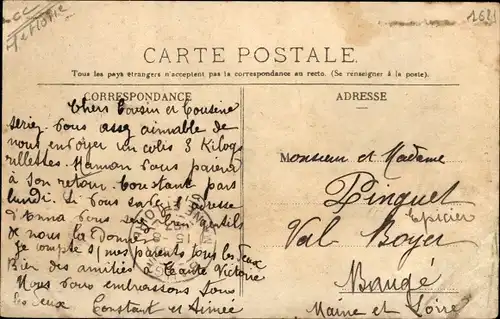 1621
CARTE POSTALE
Tous les pays étrangers n'acceptent pas la correspondance au recto. (Se renseigner à la poste).
CORRESPONDANCE
Chers Cousin et Cousine
seriez vous assez aimable de
nous envoyer un colis 3 Kilogs
rillettes. Maman vous paiera
à son retour. Constant pars
lundi. Si vous savez l'adresse
d'Anna vous seriez gentils
de nous la donner
je compte s/ mes parents tous les deux
Bien des amitiés à Tante Victoire
Nous vous embrassons tous
les deux Constant et Aimée
ADRESSE
Monsieur et Madame
Pinguet
Epicier
Val Boyer
Baugé
Maine et Loire